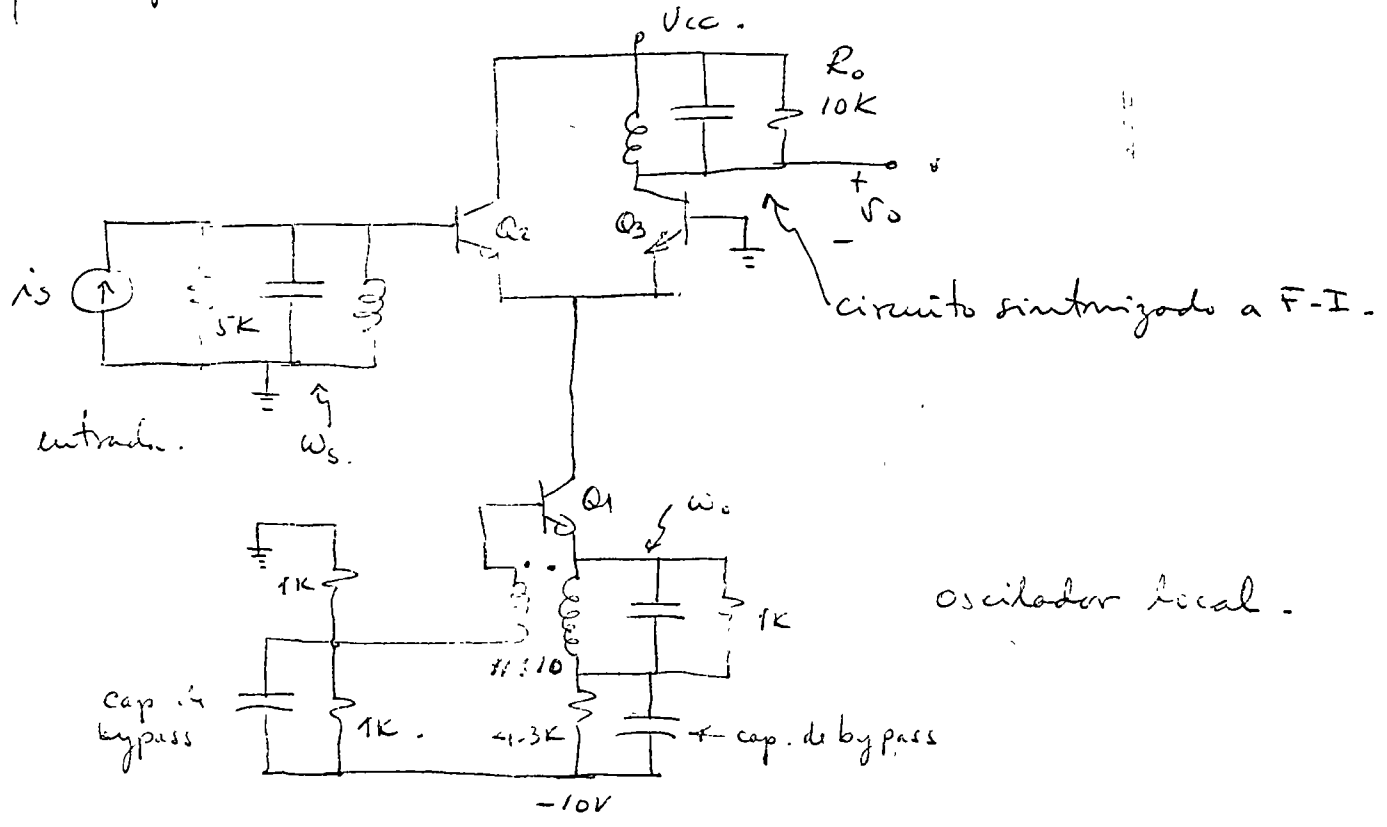 Vcc.
Ro
10K
Q2
Q3
+
vo
-
is
5K
circuito sintonizado a F-I.
entrada.
ωs.
Q1
ωo
1K
oscilador local.
1K
:10
cap. de
bypass
1K.
4.3K
cap. de bypass
-10V